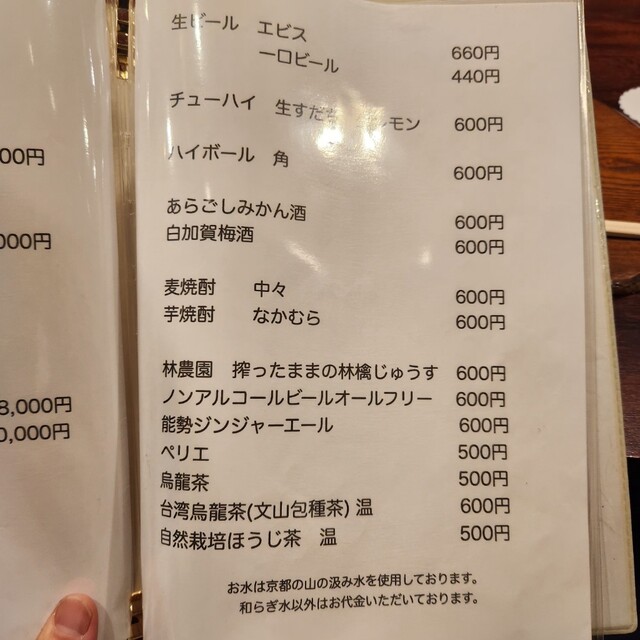 00円
000円
8,000円
0,000円
生ビール エビス 660円
一口ビール 440円
チューハイ 生すだち レモン 600円
ハイボール 角 600円
あらごしみかん酒 600円
白加賀梅酒 600円
麦焼酎 中々 600円
芋焼酎 なかむら 600円
林農園 搾ったままの林檎じゅうす 600円
ノンアルコールビールオールフリー 600円
能勢ジンジャーエール 600円
ペリエ 500円
烏龍茶 500円
台湾烏龍茶(文山包種茶) 温 600円
自然栽培ほうじ茶 温 500円
お水は京都の山の汲み水を使用しております。
和らぎ水以外はお代金いただいております。